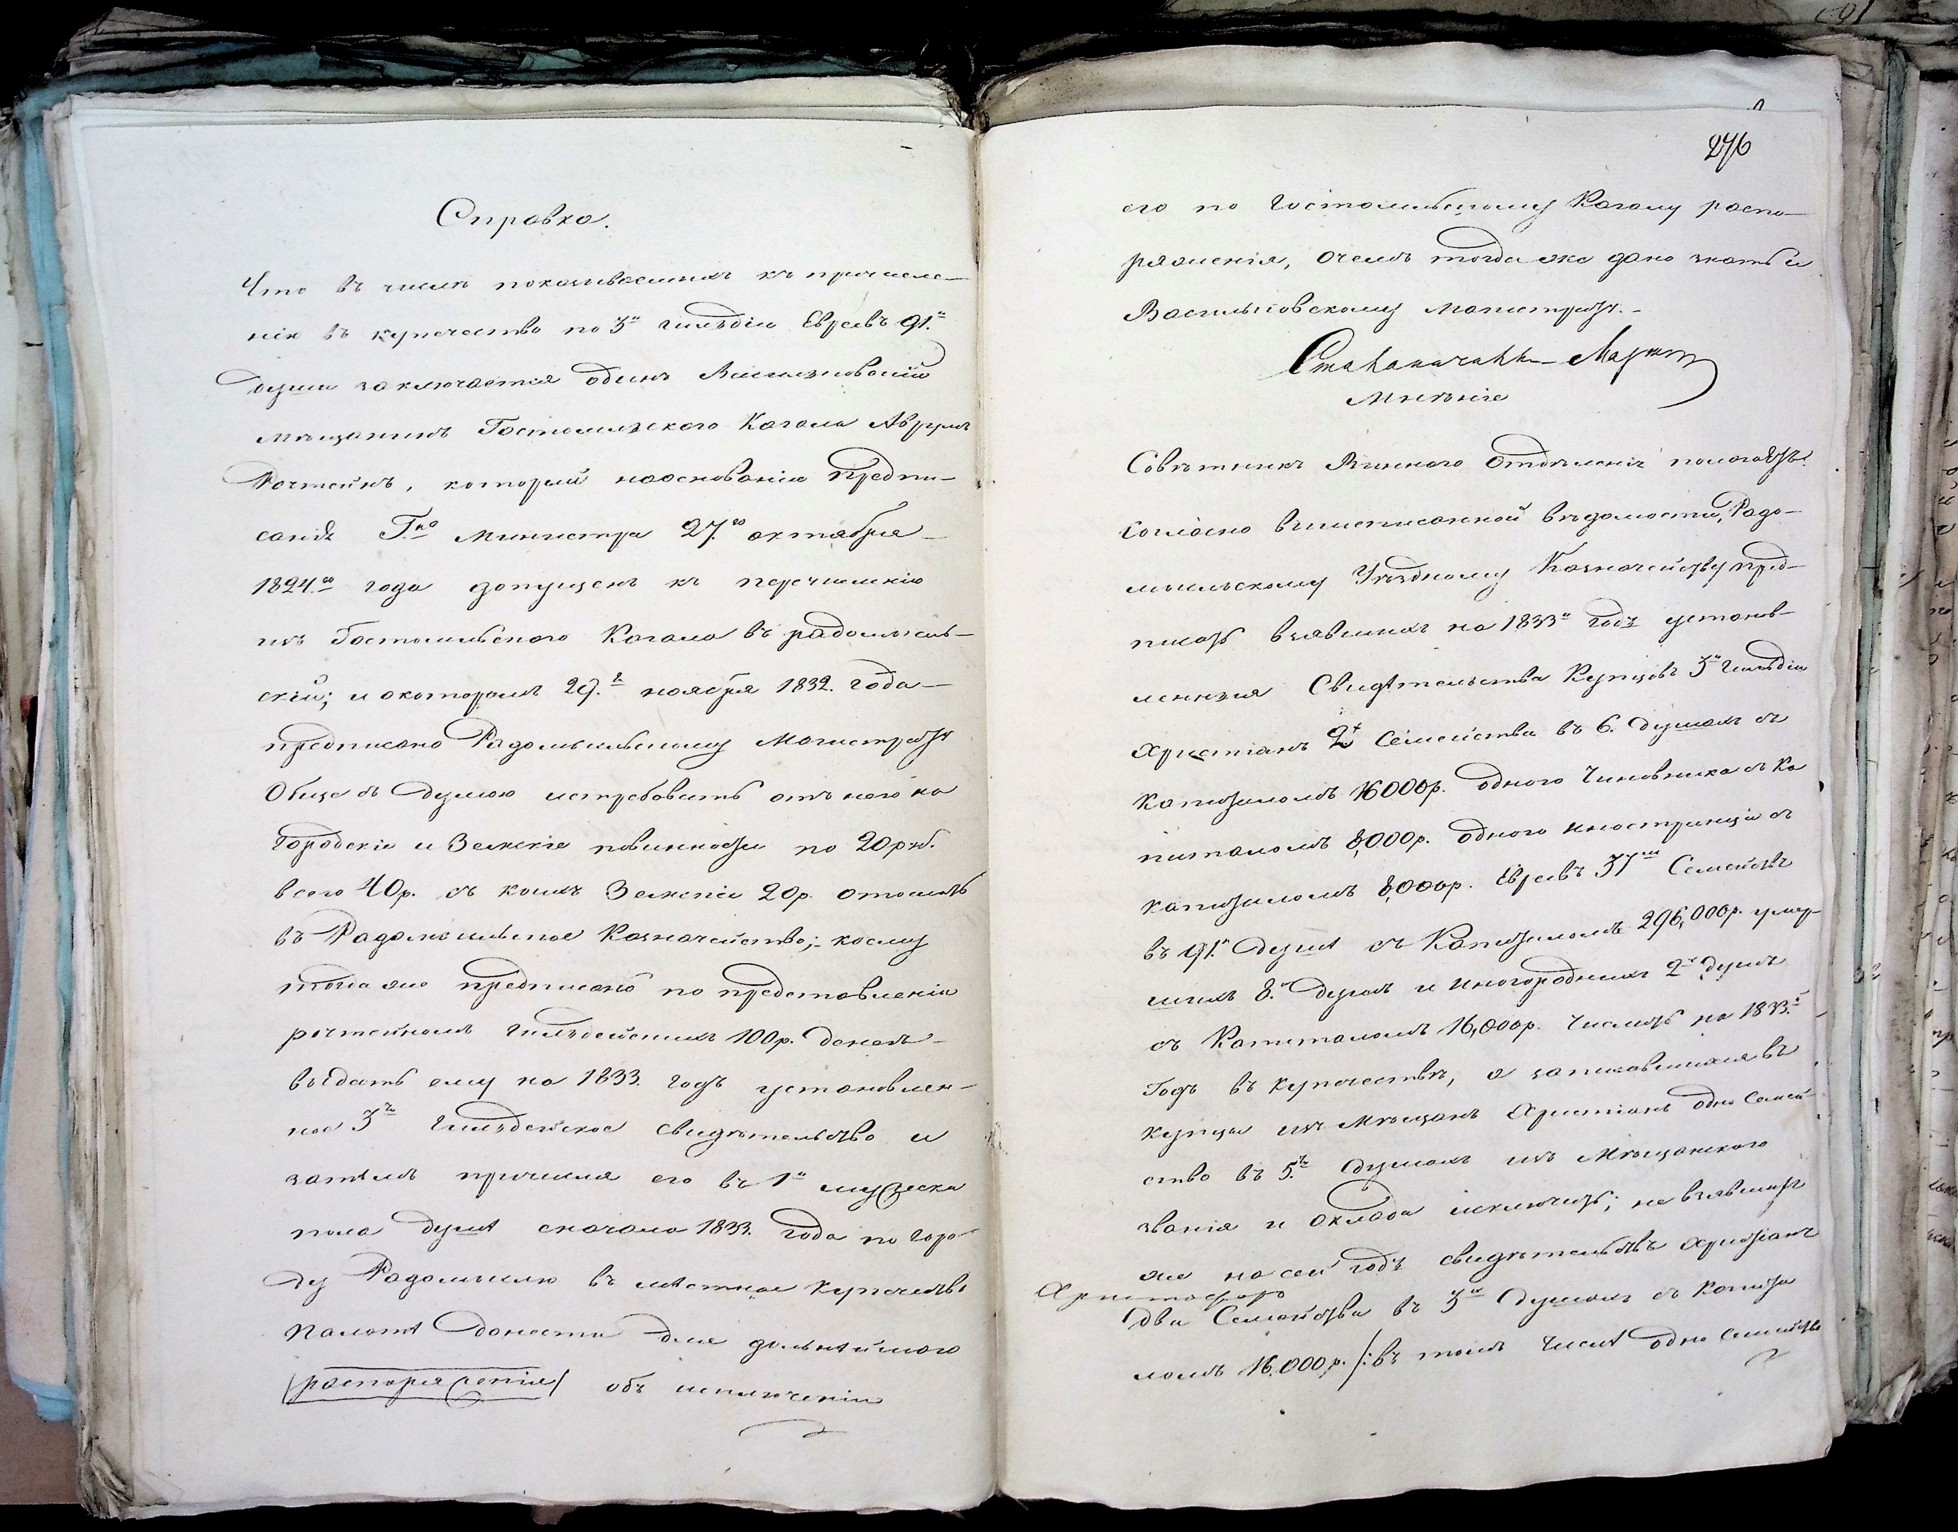 Справка.
Что въ числѣ показываемыхъ къ причисле-
нію въ купечество по 3й гильдіи Евреевъ 91й
души заключается одинъ Васильковскій
мѣщанинъ Гостомльского Кагала Аврумъ
Рохтейнъ, который наоснованіи предпи-
санія Г.на Министра 27.го октября
1824.го года допущенъ къ перечисленію
изъ Гостомльского Кагала въ радомысль-
скій; и окоторомъ 29.г ноября 1832. года
предписано Радомысльскому Магистрату
Обще съ Думою истребовать отъ него на
Городскіе и Земскіе повинности по 20 руб.
всего 40р. съ коихъ Земскіе 20р. отослать
въ Радомысльское Казначейство; коему
тогда же предписано по представленіи
рохтейномъ гильдейскихъ 100р. денегъ
выдать ему на 1833. годъ установлен-
ное 3й Гильдейское свидѣтельство и
затѣмъ причисля его въ 1й мужеска
пола душѣ сначала 1833. года по горо-
ду Радомыслю въ мѣстное купечество
Палатѣ донести для дальнѣйшаго
распоряженія обь исключеніи
276
его по Гостомльскому Кагалу распо-
ряженія, очемъ тогда же дано знать и
Васильковскому магистрату.
Мнѣніе
Совѣтникъ Виннаго Отдѣленія полагаетъ:
Согласно вышеписанной вѣдомости, Радо-
мысльскому Уѣздному Казначейству пред-
писать взявшихъ на 1833й годъ установ-
ленныя Свидѣтельства Купцовъ 3й гильдіи
Христіанъ 2х Семейства въ 6. душахъ съ
Капиталомъ 16000р. одного Чиновника съ Ка
питаломъ 8,000р. одного иностранца съ
капиталомъ 8,000р. Евреевъ 37ми Семействъ
въ 91й душѣ съ Капиталомъ 296,000р. умер-
шихъ 8.и душъ и иногородныхъ 2х душъ
съ Капиталомъ 16,000р. числить на 1833.й
Годъ въ купечествѣ, а записавшихся въ
купцы изъ Мѣщанъ Христіанъ одно Семей-
ство въ 5.ти душахъ изъ Мѣщанскаго
званія и оклада исключить; не взявшихъ
же на сей годъ свидѣтельствъ Христіанъ
два Семейства въ 3хъ душахъ съ Капита
ломъ 16.000р. /:въ томъ числѣ одно семейство